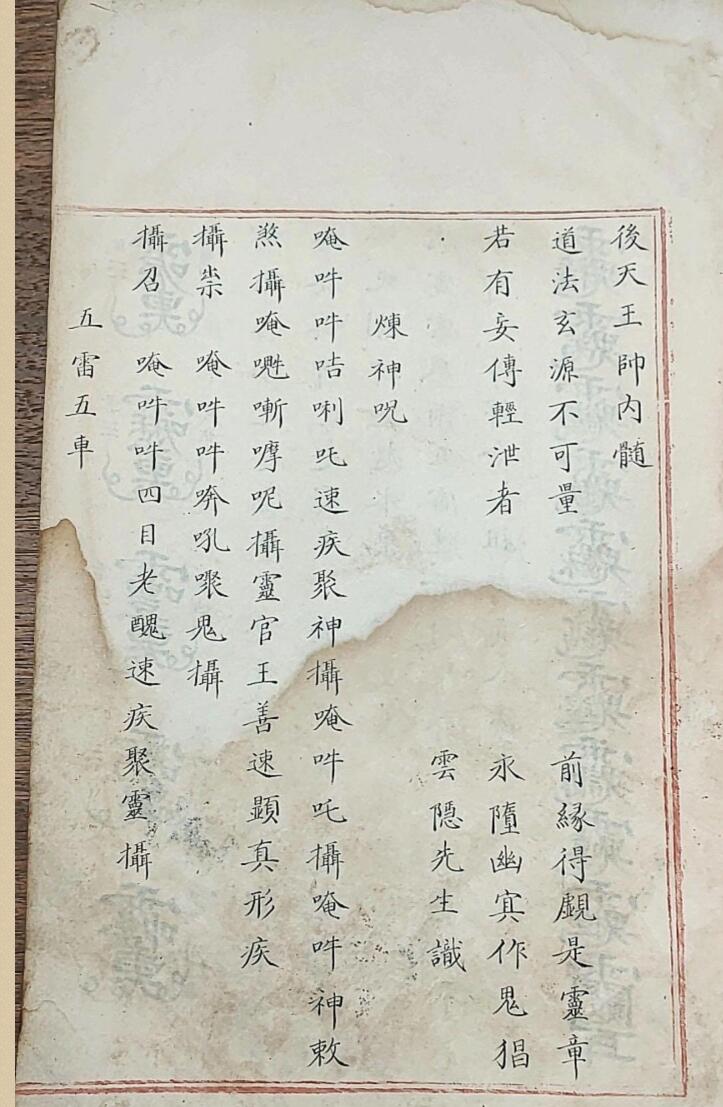 後天王帥内髓
道法玄源不可量 前緣得覷是靈章
若有妄傳輕泄者 永墮幽㝠作鬼猖
雲隱先生識
煉神呪
唵吽吽咭唎吒速疾聚神攝唵吽吒攝唵吽神敕
煞攝唵嘶嚤呢攝靈官王善速顯真形疾
攝祟 唵吽吽吼鬼攝
攝召 唵吽吽四目老醜速疾聚靈攝
五雷五車